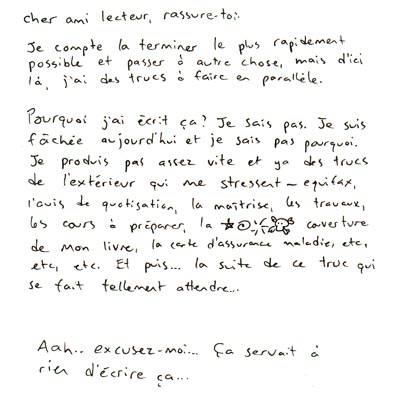 cher ami lecteur, rassure-toi.
Je compte la terminer le plus rapidement
possible et passer à autre chose, mais d'ici
là, j'ai des trucs à faire en parallèle.
Pourquoi j'ai écrit ça? Je sais pas. Je suis
fâchée aujourd'hui et je sais pas pourquoi.
Je produis pas assez vite et ya des trucs
de l'extérieur qui me stressent - equifax,
l'avis de quotisation, la maîtrise, les travaux,
les cours à préparer, la ★@ couverture
de mon livre, la carte d'assurance maladie, etc,
etc, etc. Et puis... la suite de ce truc qui
se fait tellement attendre...
Aah.. excusez-moi... Ça servait à
rien d'écrire ça...